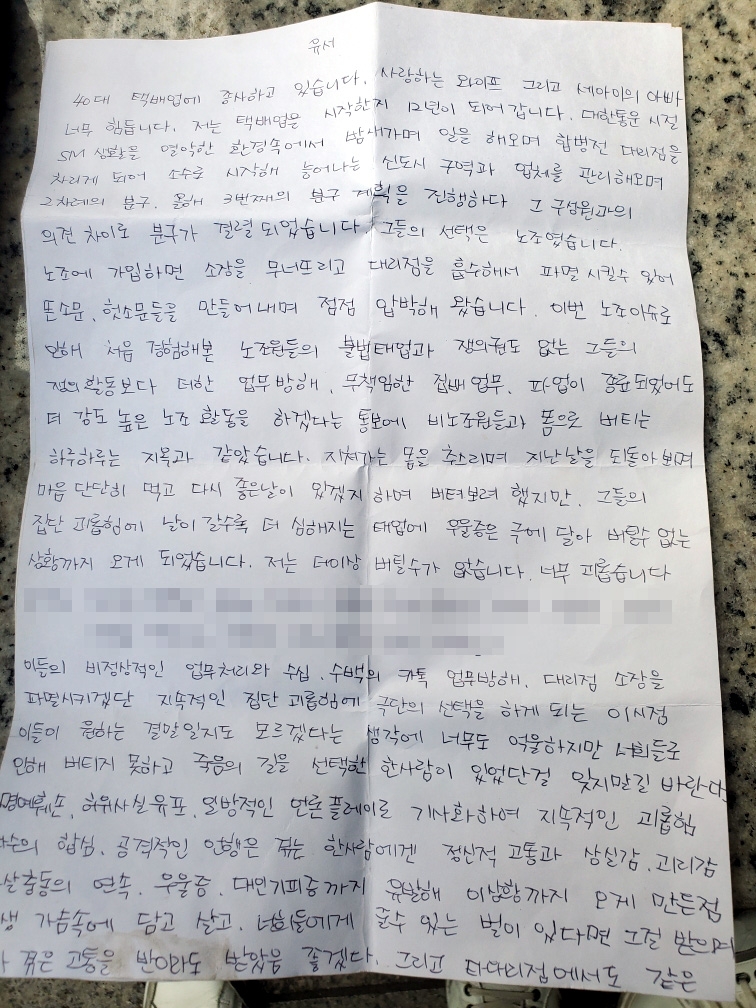 유서
40대 택배업에 종사하고 있습니다. 사랑하는 와이프 그리고 세아이의 아빠
너무 힘듭니다. 저는 택배업을 시작한지 12년이 되어 갑니다. 대한통운 시절
SM 생활을 열악한 환경속에서 밤새가며 일을 해오며 합병전 대리점을
차리게 되어 소수로 시작해 늘어나는 신도시 구역과 업체를 관리해오며
2차례의 분구. 올해 3번째의 분구 계획을 진행하다 그 구성원과의
의견 차이로 분구가 결렬 되었습니다. 그들의 선택은 노조였습니다.
노조에 가입하면 소장을 무너뜨리고 대리점을 흡수해서 파멸 시킬수 있어
뜬소문, 헛소문들을 만들어내며 점점 압박해 왔습니다. 이번 노조이슈로
인해 처음 경험해본 노조원들의 불법태업과 쟁의권도 없는 그들의
쟁의활동보다 더한 업무방해, 무책임한 집배업무, 파업이 종료되었어도
더 강도 높은 노조활동을 하겠다는 통보에 비노조원들과 몸으로 버티는
하루하루는 지옥과 같았습니다. 지쳐가는 몸을 추스리며 지난날을 되돌아보며
마음 단단히 먹고 다시 좋은날이 있겠지 하며 버텨보려 했지만. 그들의
집단 괴롭힘에 날이 갈수록 더 심해지는 태업에 우울증은 극에 달아 버틸수 없는
상황까지 오게 되었습니다. 저는 더이상 버틸수가 없습니다. 너무 괴롭습니다
이들의 비정상적인 업무처리와 수십. 수백의 카톡 업무방해, 대리점 소장을
파멸시키겠단 지속적인 집단 괴롭힘에 극단의 선택을 하게 되는 이시점
이들이 원하는 결말일지도 모르겠다는 생각에 너무도 억울하지만 너희들로
인해 버티지 못하고 죽음의 길을 선택한 한사람이 있었단걸 잊지말길 바란다.
명예훼손, 허위사실유포, 일방적인 언론플레이로 기사화하여 지속적인 괴롭힘
다수의 합심, 공격적인 언행은 겪는 한사람에겐 정신적 고통과 상실감, 괴리감
살충동의 연속, 우울증, 대인기피증까지 유발해 이상황까지 오게 만든점
생 가슴속에 담고 살고, 너희들에게 줄수 있는 벌이 있다면 그걸 받으며
가 겪은 고통을 받아라도 받았음 좋겠다. 그리고 타대리점에서도 같은